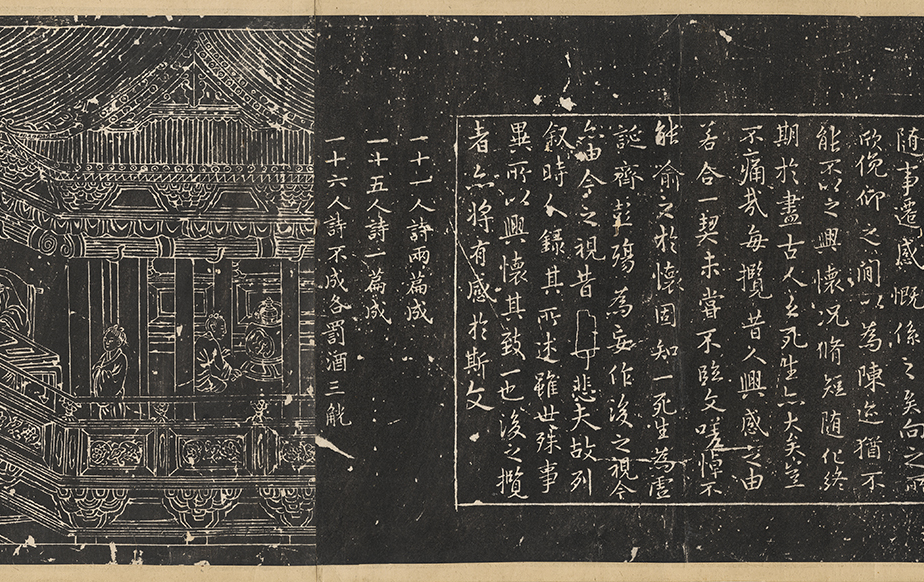 随事遷感慨係之矣向之所
欣俛仰之閒以為陳迹猶不
能不以之興懷况脩短随化終
期於盡古人云死生亦大矣豈
不痛哉每攬昔人興感之由
若合一契未嘗不臨文嗟悼不
能喻之於懷固知一死生為虛
誕齊彭殤為妄作後之視今
亦由今之視昔悲夫故列
叙時人錄其所述雖世殊事
異所以興懷其致一也後之攬
者亦將有感於斯文
一十一人詩兩篇成
一十五人詩一篇成
一十六人詩不成各罰酒三觥